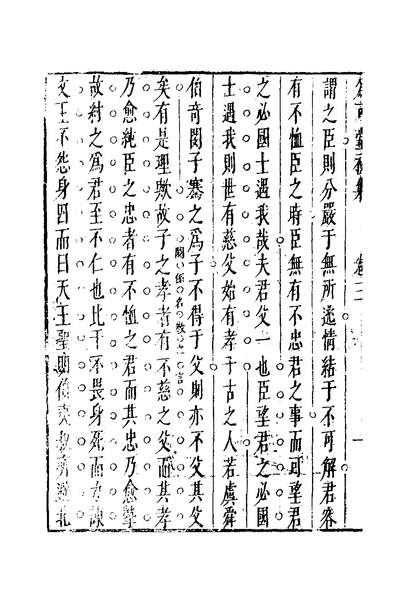 謂之臣則分嚴于無所逃情結于不可解君容
有不恤臣之時臣無有不忠君之事而可望君
之必國士遇我哉夫君父一也臣望君之必國
士遇我則世有慈父始有孝子古之人若虞舜
伯奇閔子騫之為子不得于父則亦不父其父
關係名教之言
矣有是理歟故子之孝者有不慈之父而其孝
乃愈純臣之忠者有不恤之君而其忠乃愈摯
故紂之為君至不仁也比干不畏身死而力諫
文王不怨身囚而曰天王聖明伯夷叔齊避北